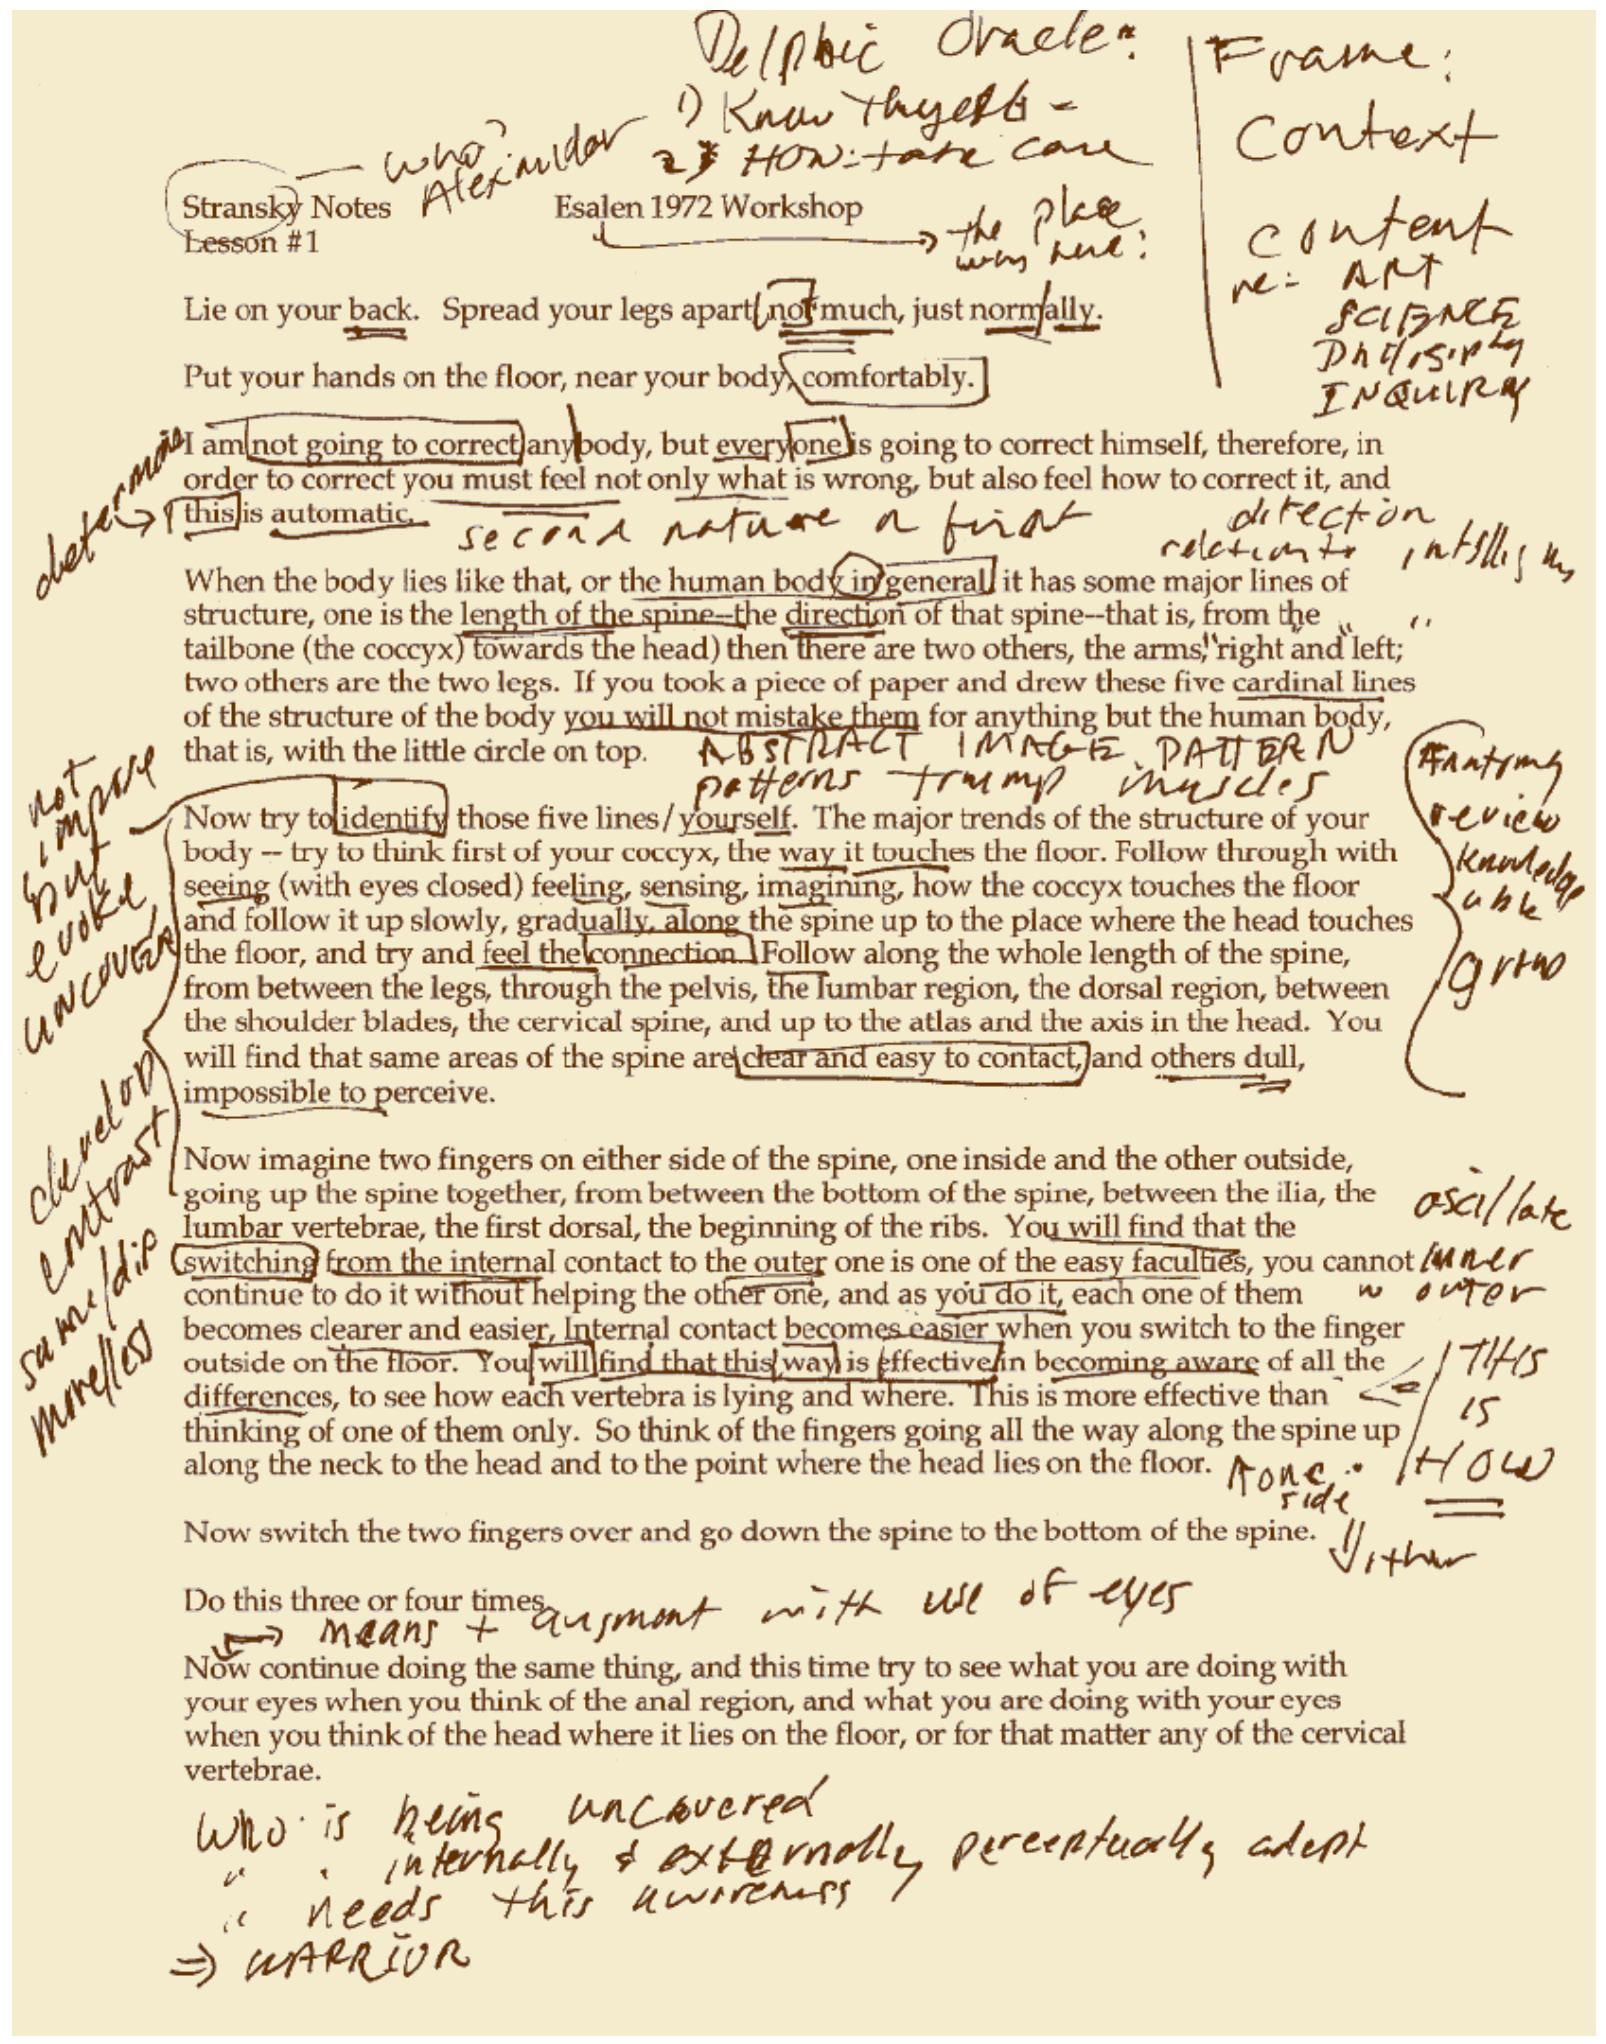 Delphic Oracle:
1) Know Thyself -
2) HOW: take care
Frame:
Context
content
re: ART
SCIENCE
INQUIRY
who?
Alexander
Stransky Notes Esalen 1972 Workshop
Lesson #1
the place
was here:
Lie on your back. Spread your legs apart, not much, just normally.
Put your hands on the floor, near your body, comfortably.
I am not going to correct anybody, but everyone is going to correct himself, therefore, in
order to correct you must feel not only what is wrong, but also feel how to correct it, and
this is automatic.
second nature or first
direction
relation to
When the body lies like that, or the human body in general, it has some major lines of
structure, one is the length of the spine--the direction of that spine--that is, from the
tailbone (the coccyx) towards the head) then there are two others, the arms, "right" and "left";
two others are the two legs. If you took a piece of paper and drew these five cardinal lines
of the structure of the body you will not mistake them for anything but the human body,
that is, with the little circle on top.
ABSTRACT IMAGE PATTERN
patterns trump muscles
not
impose
but
evoke,
uncover
Now try to identify those five lines/yourself. The major trends of the structure of your
body -- try to think first of your coccyx, the way it touches the floor. Follow through with
seeing (with eyes closed) feeling, sensing, imagining, how the coccyx touches the floor
and follow it up slowly, gradually, along the spine up to the place where the head touches
the floor, and try and feel the connection. Follow along the whole length of the spine,
from between the legs, through the pelvis, the lumbar region, the dorsal region, between
the shoulder blades, the cervical spine, and up to the atlas and the axis in the head. You
will find that same areas of the spine are clear and easy to contact, and others dull,
impossible to perceive.
Anatomy
review
knowledge
able
develop
contrast
same/dif
more/less
Now imagine two fingers on either side of the spine, one inside and the other outside,
going up the spine together, from between the bottom of the spine, between the ilia, the
lumbar vertebrae, the first dorsal, the beginning of the ribs. You will find that the
switching from the internal contact to the outer one is one of the easy faculties, you cannot
continue to do it without helping the other one, and as you do it, each one of them
becomes clearer and easier, Internal contact becomes easier when you switch to the finger
outside on the floor. You will find that this way is effective in becoming aware of all the
differences, to see how each vertebra is lying and where. This is more effective than
thinking of one of them only. So think of the fingers going all the way along the spine up
along the neck to the head and to the point where the head lies on the floor.
oscillate
inner
outer
THIS
IS
HOW
one
side
Now switch the two fingers over and go down the spine to the bottom of the spine.
other
Do this three or four times.
means + augment with use of eyes
Now continue doing the same thing, and this time try to see what you are doing with
your eyes when you think of the anal region, and what you are doing with your eyes
when you think of the head where it lies on the floor, or for that matter any of the cervical
vertebrae.
Who is being uncovered
" " internally & externally perceptually adept
" needs this awareness
⇒ WARRIOR